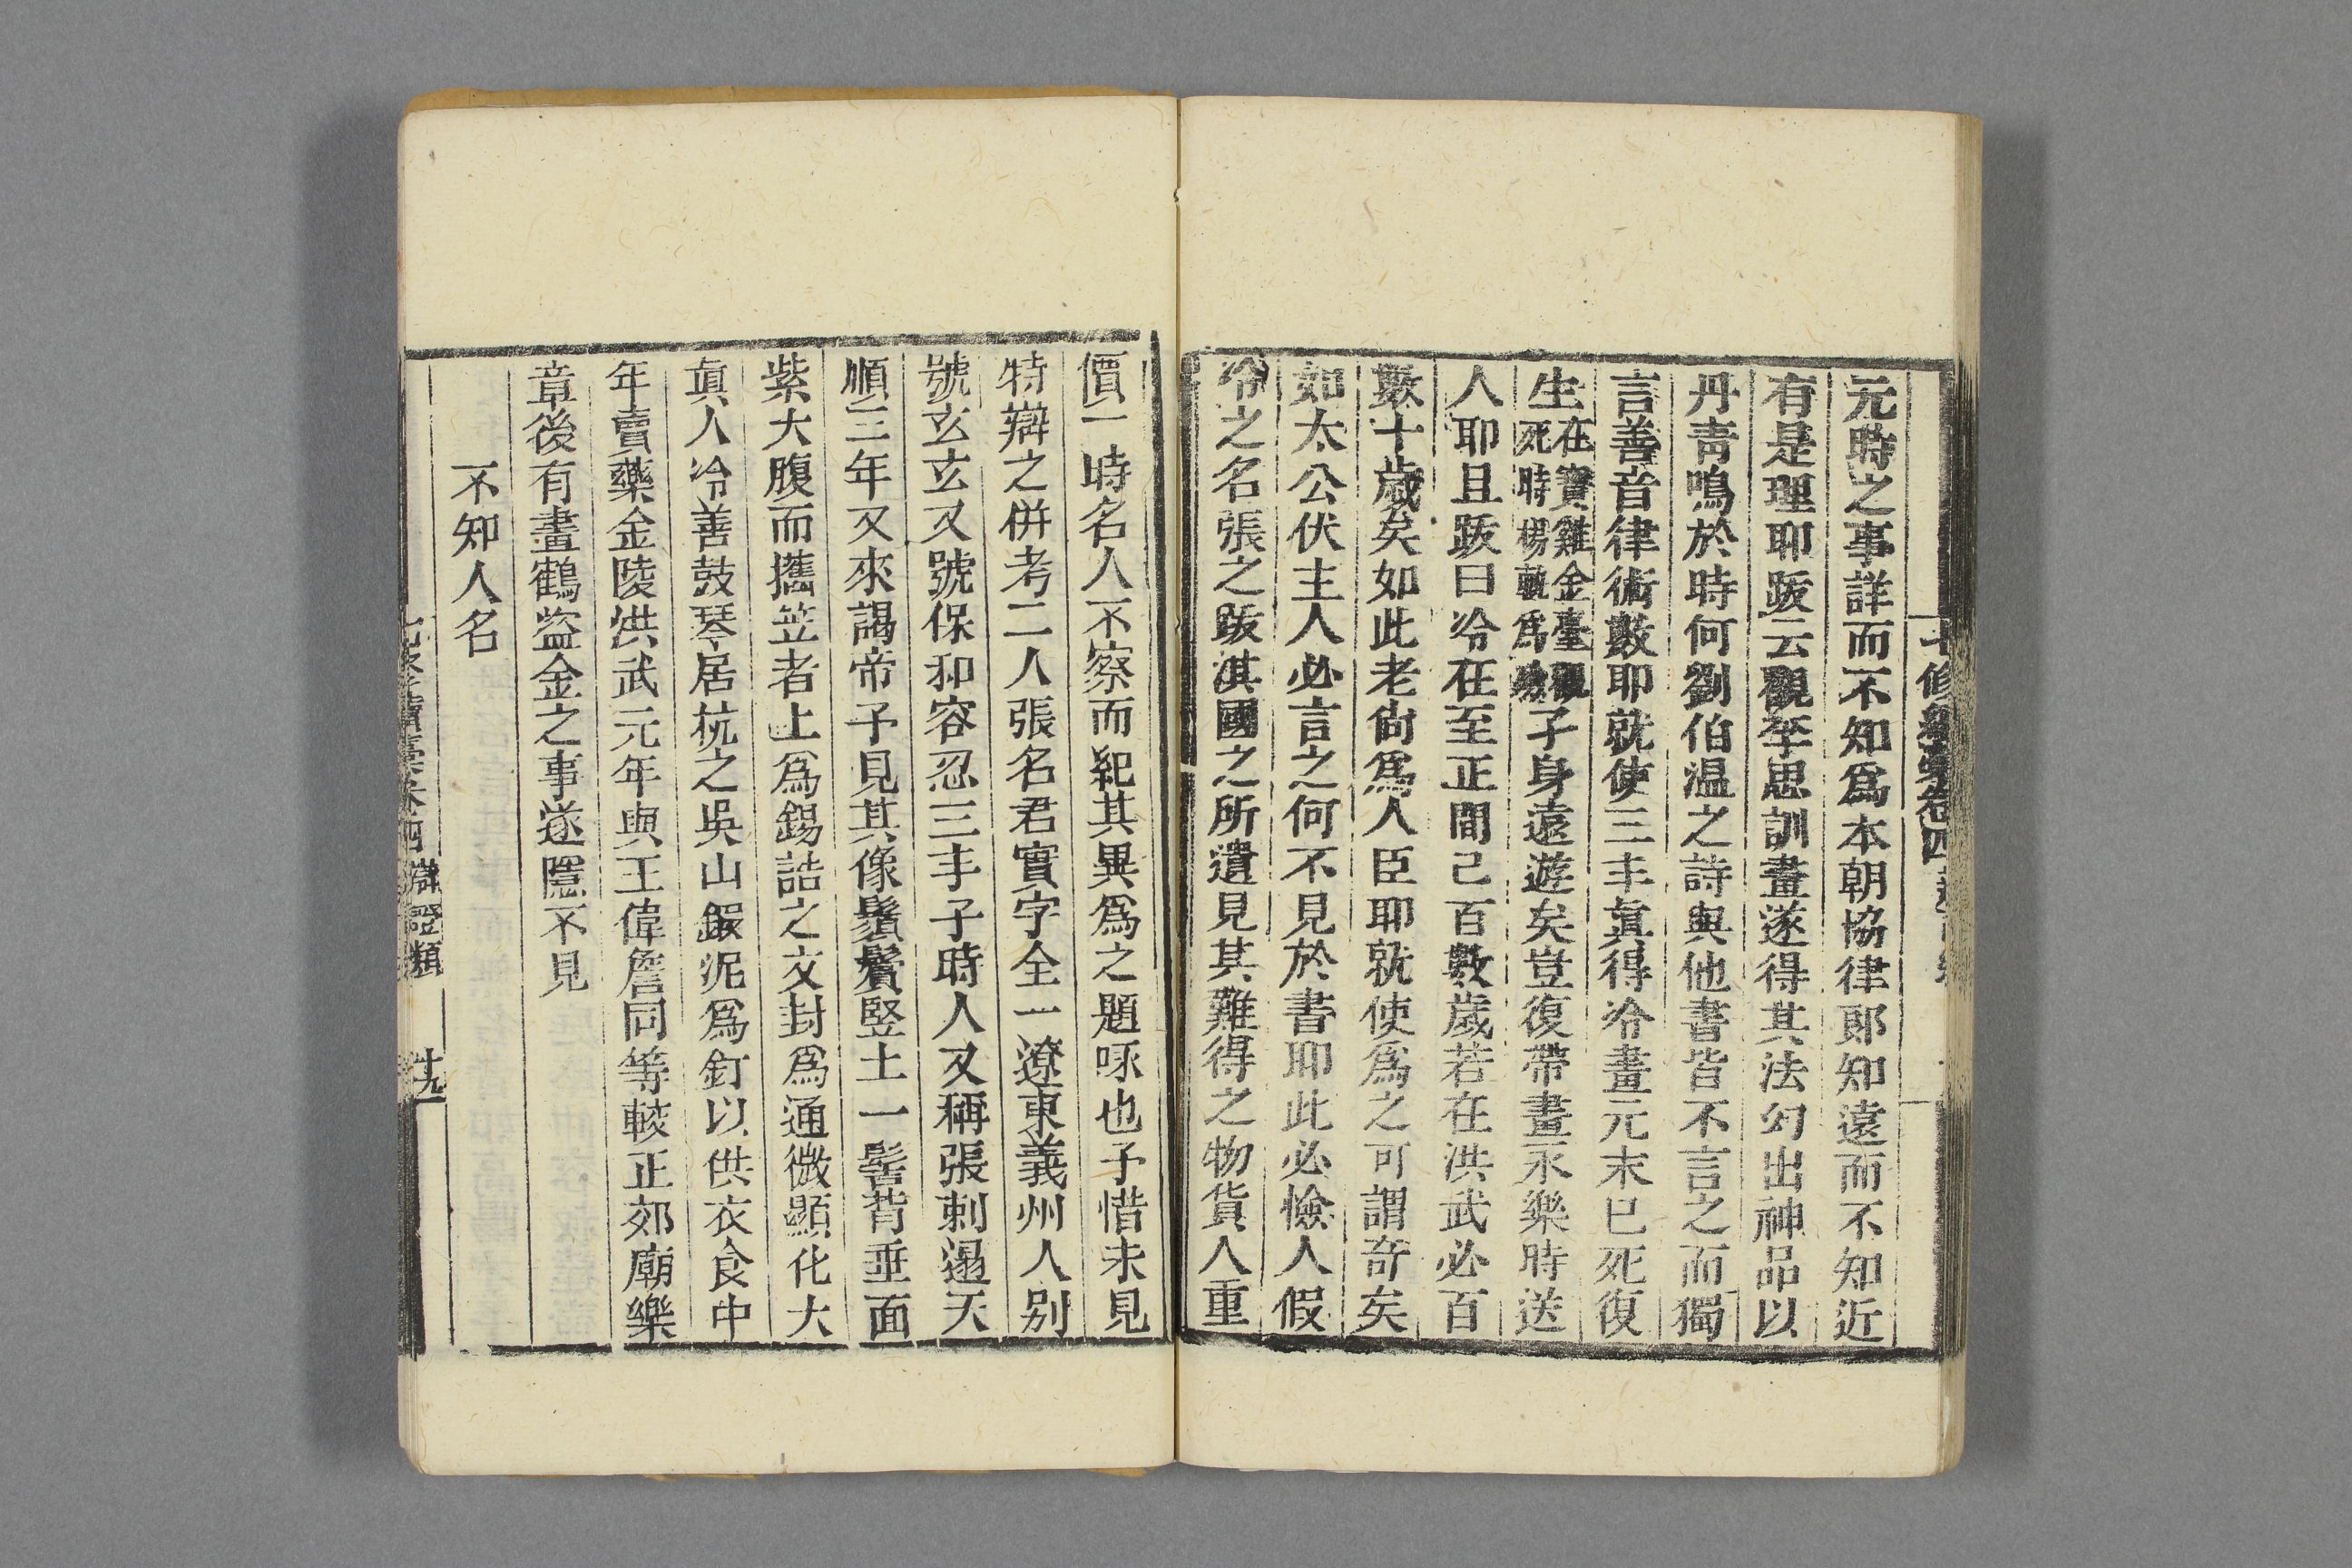 元時之事詳而不知爲本朝協律郎知遠而不知近
有是理耶䟦云觀李思訓畫遂得其法匀出神品以
丹青鳴於時何劉伯温之詩與他書皆不言之而獨
言善音律術數耶就使三丰眞得冷畫元末已死復
生在寶雞金臺觀死時楊軌爲殮子身遠遊矣豈復帶畫永樂時送
人耶且䟦曰冷在至正間已百數歲若在洪武必百
數十歲矣如此老尙爲人臣耶就使爲之可謂奇矣
如太公伏生人必言之何不見於書耶此必憸人假
冷之名張之䟦淇國之所遺見其難得之物貨人重
價一時名人不察而紀其異爲之題咏也予惜未見
特辯之併考二人張名君實字全一遼東義州人别
號玄玄又號保和容忍三丰子時人又稱張剌遢天
順三年又來謁帝予見其像鬚鬢竪土一髻背垂面
紫大腹而攜笠者上爲錫誥之文封爲通微顯化大
眞人冷善鼓琴居杭之吳山鍛泥爲釘以供衣食中
年賣藥金陵洪武元年與王偉詹同等較正郊廟樂
章後有畫鶴盜金之事遂隱不見
不知人名
七修續藁卷四 辯證類 十九